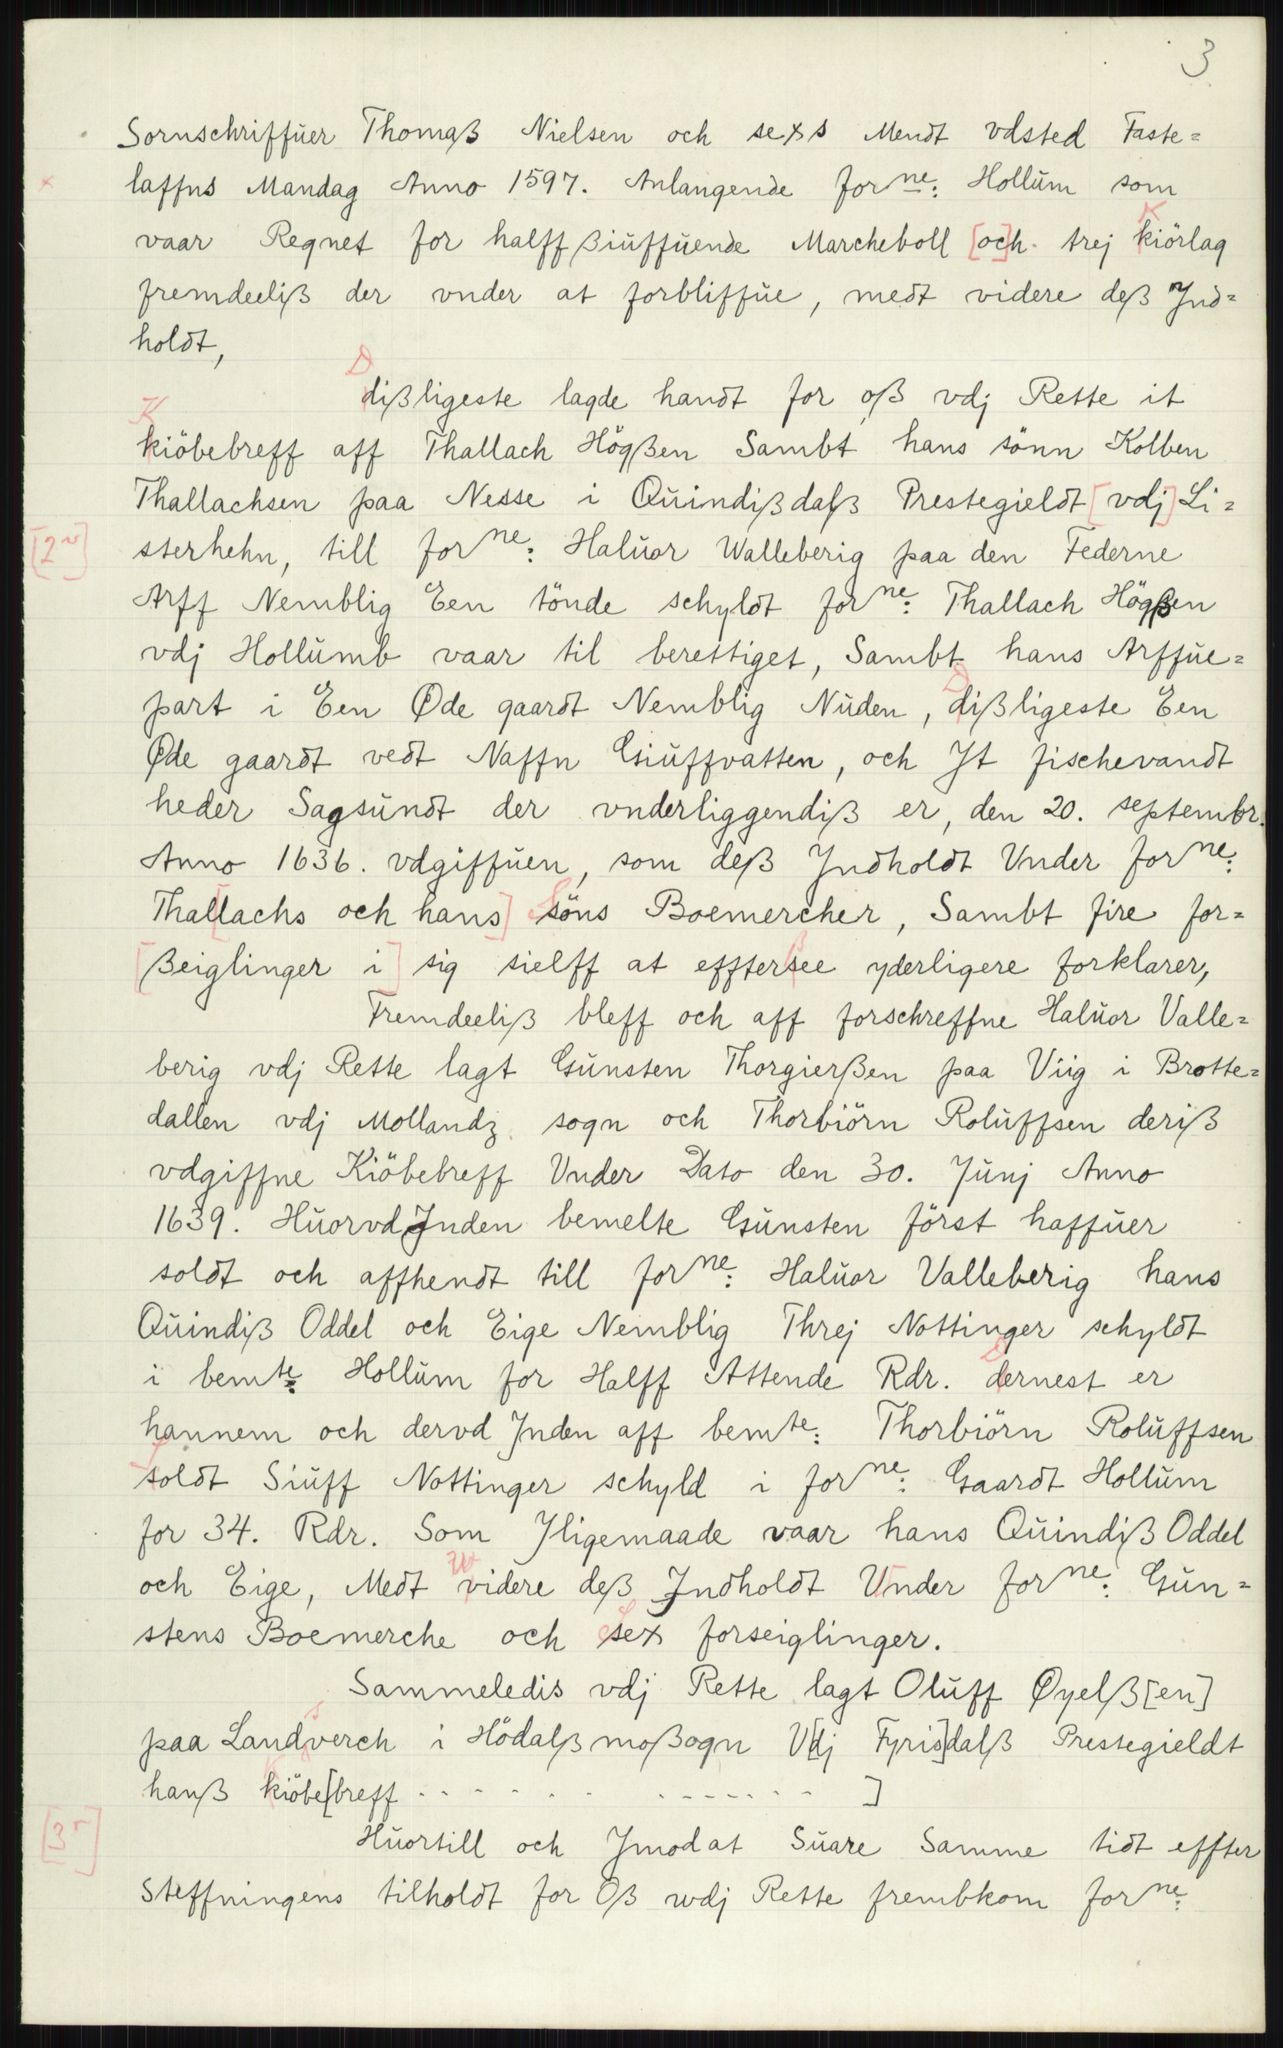 3
Sornschriffuer Thomaß Nielsen och sexs Mendt vdsted Faste=
laffns Mandag Anno 1597. Anlangende forne: Hollum som
vaar Regnet for halff ßiuffuende Marcheboll [oc]h trej kiörlag
fremdeeliß der vnder at forbliffue, medt videre deß Ind=
holdt,
dißligeste lagde handt for oß vdj Rette it
kiöbebreff aff Thallach Högßen Sambt hans sönn Kolben
Thallachsen paa Nesse i Quindißdalß Prestegieldt [vdj] Li=
[2v] sterhehn, till forne: Haluor Walleberig paa den Federne
Arff Nemblig Een tönde schyldt forne: Thallach Högßen
vdj Hollumb vaar til berettiget, Sambt hans Arffue=
part i Een Øde gaardt Nemblig Nuden, dißligeste Een
Øde gaardt vedt Naffn Giuffvatten, och It fischevandt
heder Sagsundt der vnderliggendiß er, den 20. septembr.
Anno 1636. vdgiffuen, som deß Indholdt Vnder forne:
Thal[lachs och hans] söns Boemercher, Sambt fire for=
[ßeiglinger i] sig sielff at efftersee yderligere forklarer,
Fremdeeliß bleff och aff forschreffne Haluor Valle=
berig vdj Rette lagt Gunsten Thorgierßen paa Viig i Brotte=
dallen vdj Mollandz sogn och Thorbiörn Roluffsen deriß
vdgiffne Kiöbebreff Vnder Dato den 30. Junj Anno
1639. Huorvd Inden bemelte Gunsten först haffuer
soldt och affhendt till forne: Haluor Valleberig hans
Quindiß Oddel och Eige Nemblig Threj Nottinger schyldt
i bemte: Hollum for Halff Attende Rdr. dernest er
hannem och dervd Inden aff bemte: Thorbiörn Roluffsen
soldt Siuff Nottinger schyld i forne: Gaardt Hollum
for 34. Rdr. Som Iligemaade vaar hans Quindiß Oddel
och Eige, Medt videre deß Indholdt Under forne: Gun=
stens Boemerche och sex forseiglinger.
Sammeledis vdj Rette lagt Oluff Øyelß[en]
paa Landverch i Hödalß moßogn V[dj Fyris]dalß Prestegieldt
hanß kiöbe[breff . . . . . . . . . . . . ]
[3r] Huortill och Imod at Suare Samme tidt effter
Steffningens tilholdt for Oß wdj Rette frembkom forne: